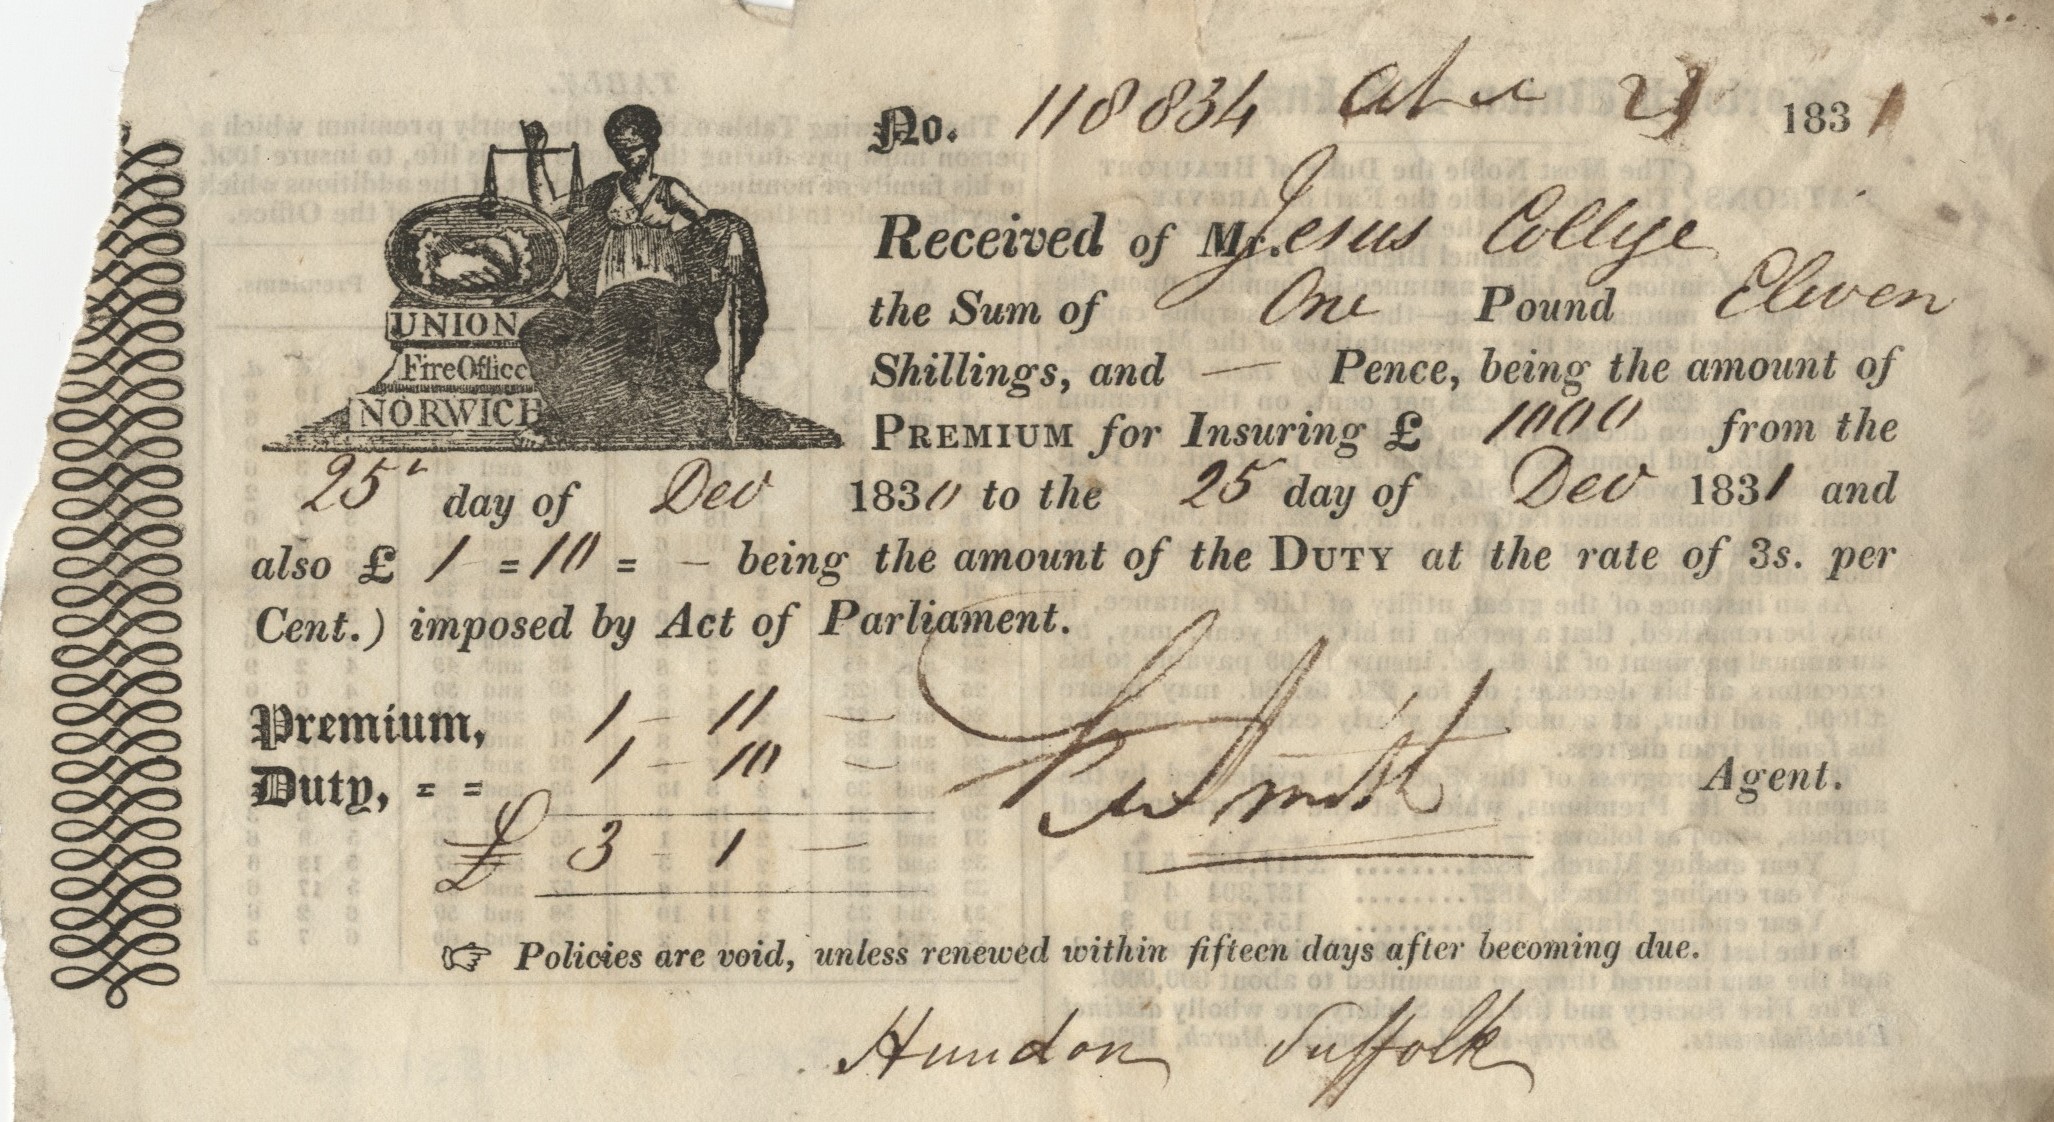 No. 118834 21 1831
UNION
Fire Office
NORWICH
Received of Mr. Jesus College
the Sum of One Pound Eleven
Shillings, and — Pence, being the amount of
PREMIUM for Insuring £ 1000 from the
25th day of Dec 1830 to the 25 day of Dec 1831 and
also £ 1 = 10 = – being the amount of the DUTY at the rate of 3s. per
Cent.) imposed by Act of Parliament.
Premium, 1 – 11 –
Duty, = = 1 – 10 –
Smith Agent.
£ 3 – 1 –
☞ Policies are void, unless renewed within fifteen days after becoming due.
Hundon Suffolk